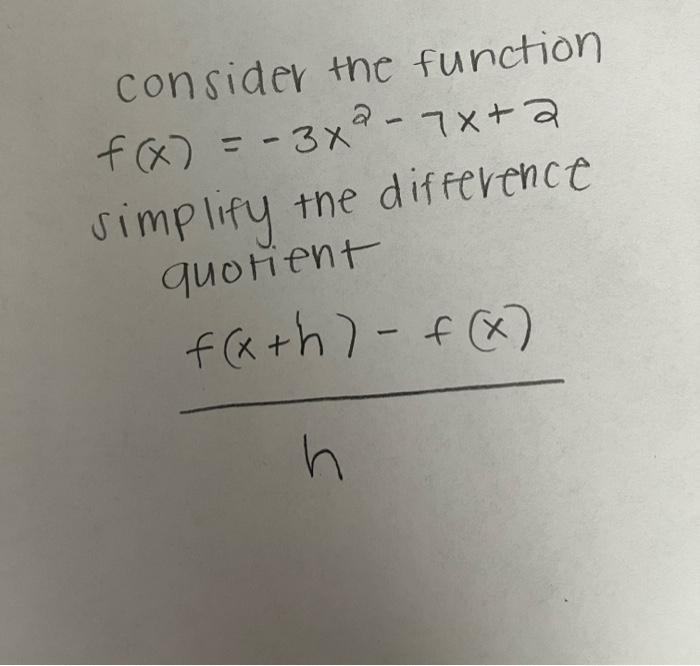 consider the function
f(x) = -3x² - 7x + 2
simplify the difference
quotient
f(x+h) - f(x)
h